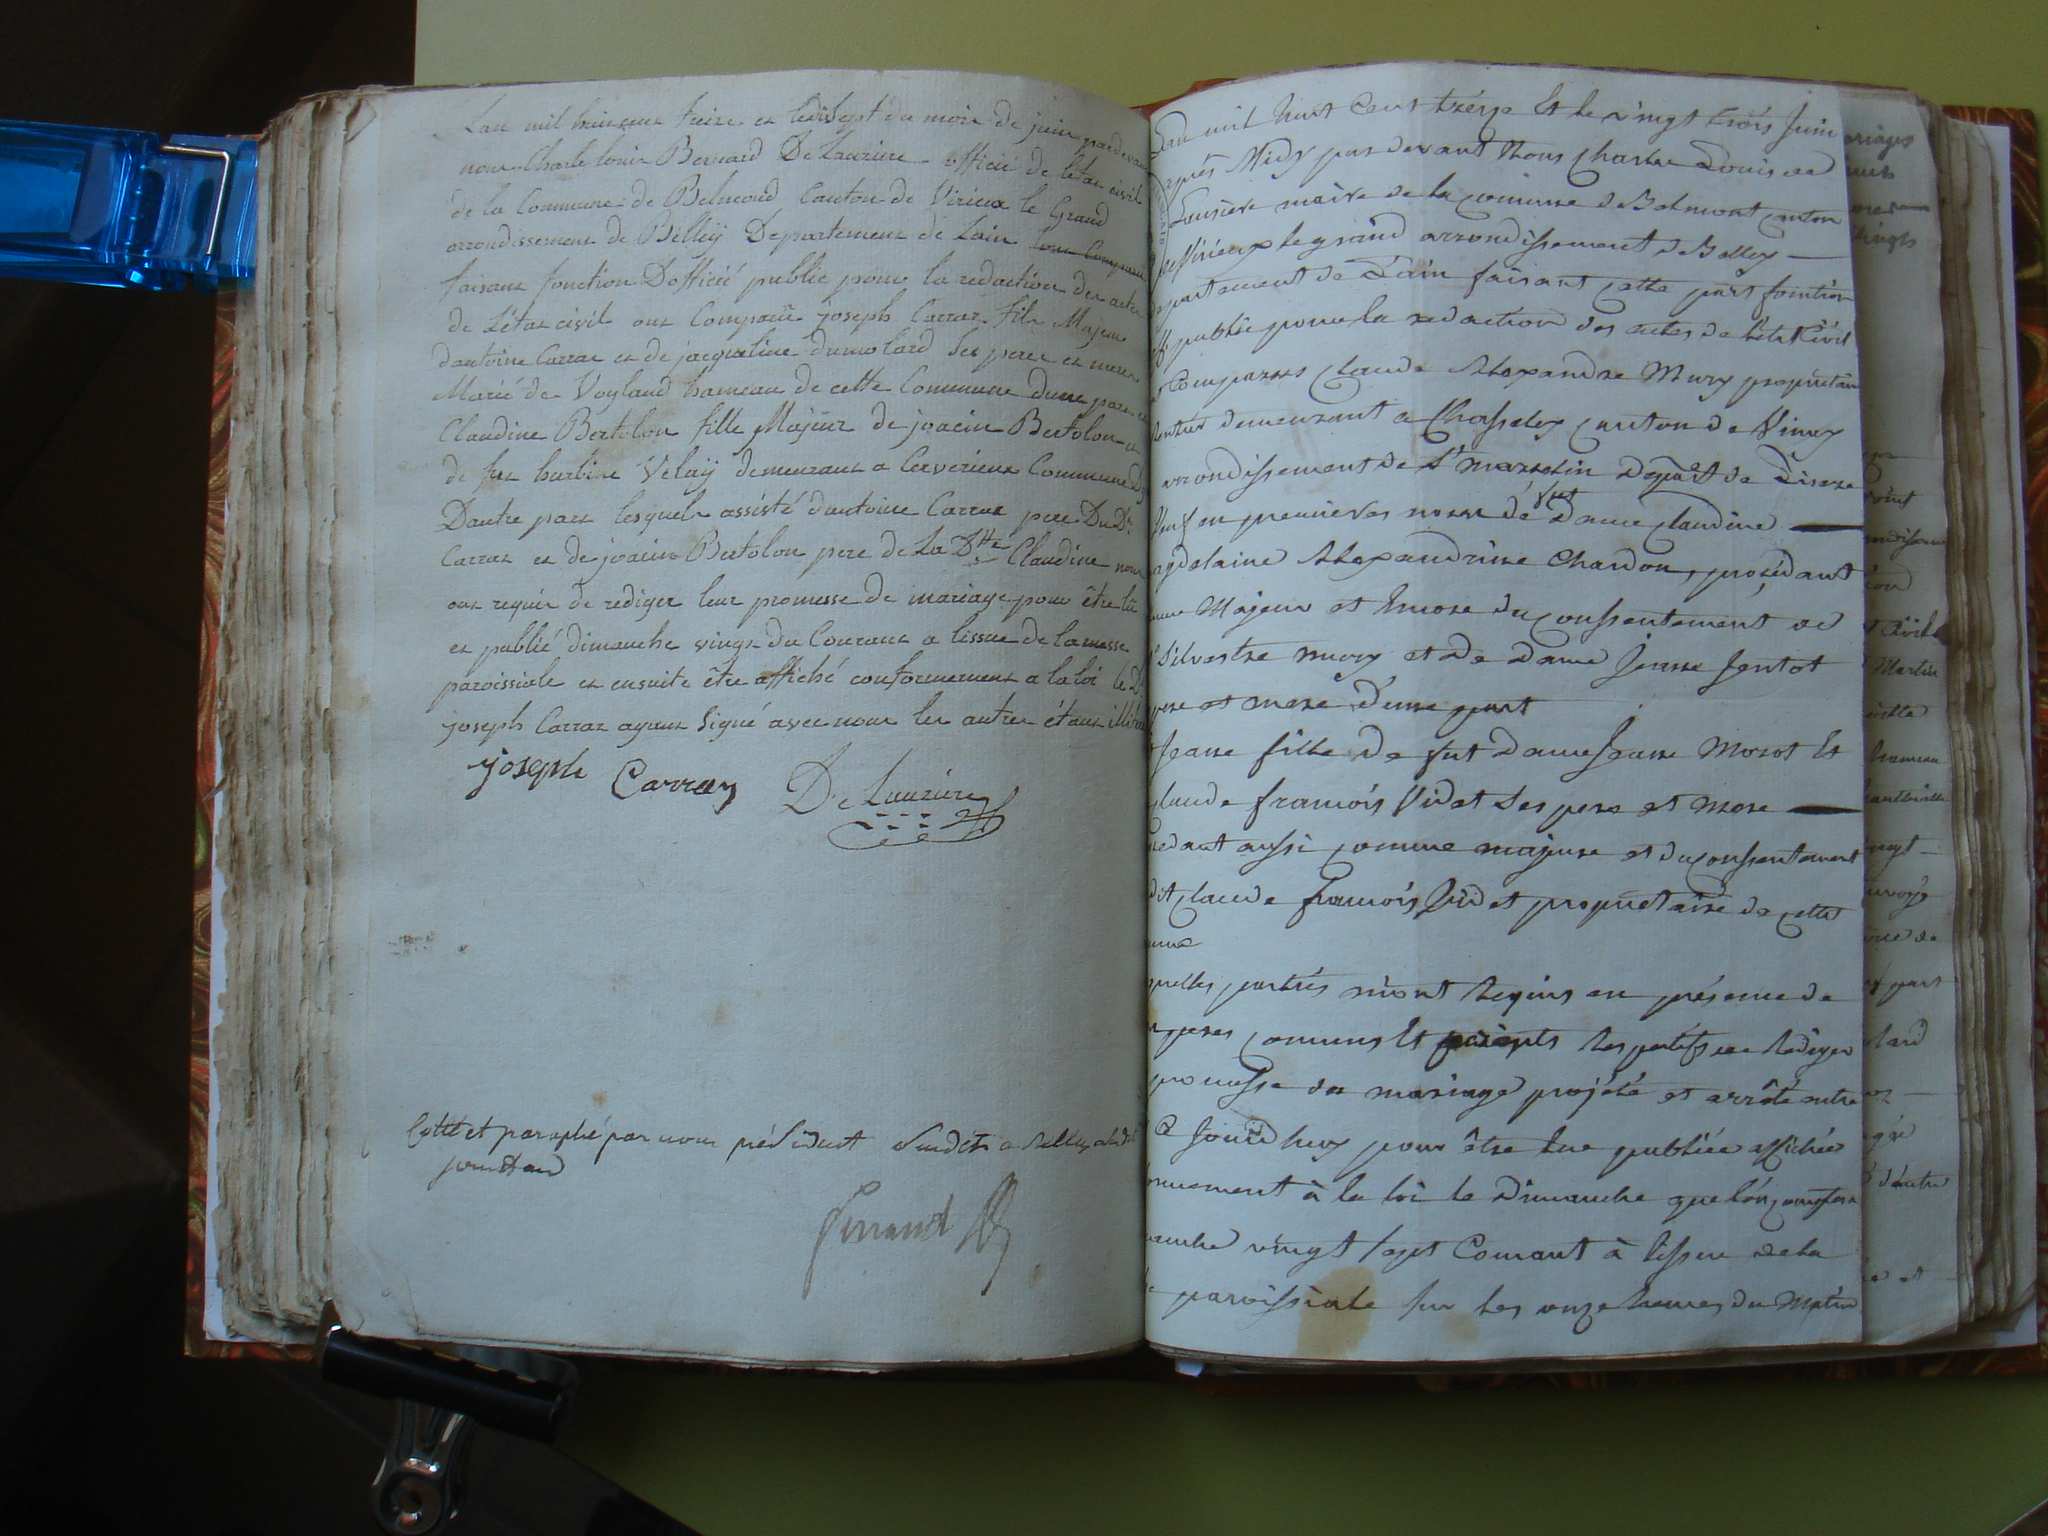 Lan mil huit cent treize et ledisept du mois de juin pardevant
nous Charle louis Bernard De Lauziere officié de létat civil
de la Commune de Belmond Canton de Virieux le Grand
arrondissement de Belleÿ Departement de Lain
faisant fonction Dofficié public pour la redaction des actes
de Létat civil ont Comparu joseph Carraz fils Majeur
dantoine Carraz et de jacqueline dumolard ses peres et meres
Marié de Vogland hameau de cette Commune dune part et
Claudine Bertolon fille Majeur de joacin Bertolon et
de feu barbine Velaÿ demeurant a Cerverieux Commune
Dautre part lesquels assisté dantoine Carraz pere Du Dt
Carraz et de joacin Bertolon pere de La Dtte Claudine nous
ont requis de rediger leur promesse de mariage pour être lü
et publié dimanche vingt du Courant a lissue de la messe
paroissiale et ensuite être affiché conformement a la loi le Dt
joseph Carraz ayant signé avec nous les autres étant illitéré
joseph Carraz DeLauziere
Cotté et paraphé par nous président Susdit a Belley
jour et an
Lan mil huit Cent treize Et le vingt trois Juin
après Midy par devant Nous Charles Louis de
Lausiere maire de la comune de Belmont canton
de Virieux le grand arrondissement de Belley
partement de Lain faisant cette part fonction
publie pour la redaction des actes de l'état Civil
Comparus Claude Alexandre Mury propriétaire
Rentier demeurant a Chasseley canton de Vinay
arrondissement de St marselin Depart de Lisere
Veuf en premieres noces de fut Dame Claudine
agdelaine Alexandrine Chardon, prosédant
mme Majeur et encore du consentement de
Silvestre mury et de Dame Jeanne Jentot
pere et mere d'une part
Jeane fille de fut Dame Jeanne Morot Et
laude francois Videt Ses pere et mere
edant aussi comme majeure et du consentement
dit Claude francois Videt propriétaire de cette
mune
quelles parties m'ont Requis en présence de
peres comuns Et parents Respectifs de Rediger
promesse de mariage projété et arrêté entre
a Jourd huy pour être lue publiée affichée
ormement à la loi le Dimanche que l'on comptera
anche vingt sept Courant à lissue de la
paroissiale sur les onze heures du Matin